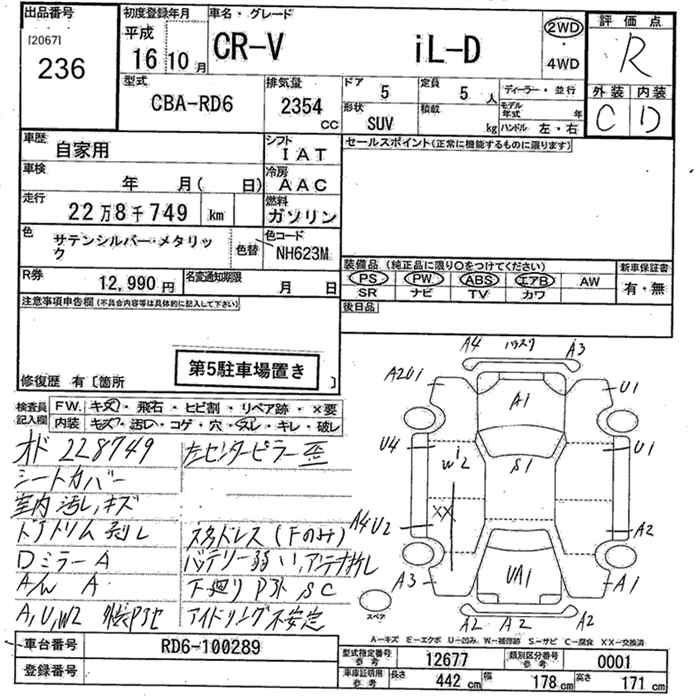 出品番号
[2067]
236
初度登録年月
平成
16 10 月
車名・グレード
CR-V iL-D
2WD
・
4WD
評価点
R
外装 内装
C D
型式
CBA-RD6
排気量
2354 cc
ドア
5
定員
5 人
形状
SUV
積載
kg
ディーラー・並行
モデル年式 年
ハンドル 左・右
車歴
自家用
シフト
IAT
車検
年 月( 日)
冷房
AAC
走行
22万8千749 km
燃料
ガソリン
色
サテンシルバー・メタリック
色替
色コード
NH623M
R券
12,990 円
名変通知期限
月 日
セールスポイント(正常に機能するものに限ります)
装備品 (純正品に限り○をつけてください)
PS PW ABS エアB AW
SR ナビ TV カワ
新車保証書
有・無
後日品
注意事項申告欄(不具合内容等は具体的に記入して下さい)
第5駐車場置き
修復歴 有〔箇所 〕
検査員記入欄
FW. キズ・飛石・ヒビ割・リペア跡・×要
内装 キズ・汚レ・コゲ・穴・スレ・キレ・破レ
オド 228749
シートカバー
室内 汚レ、キズ
ドアトリム 剥レ
Dミラー A
A/W A
A,U,W2
左センターピラー 歪
スタッドレス (Fのみ)
バッテリー弱い、アンテナ折レ
下廻り
SC
アイドリング不安定
A4
A3
A2U1
U1
A1
U4
W2
S1
U1
XX
A4U2
A2
A3
UA1
A1
A2 A2 A2
スペア
A-キズ E-エクボ U-凹み W-補修跡 S-サビ C-腐食 XX-交換済
車台番号
RD6-100289
登録番号
型式指定番号 参考
12677
類別区分番号 参考
0001
車庫証明用 参考
長さ 442 cm 幅 178 cm 高さ 171 cm